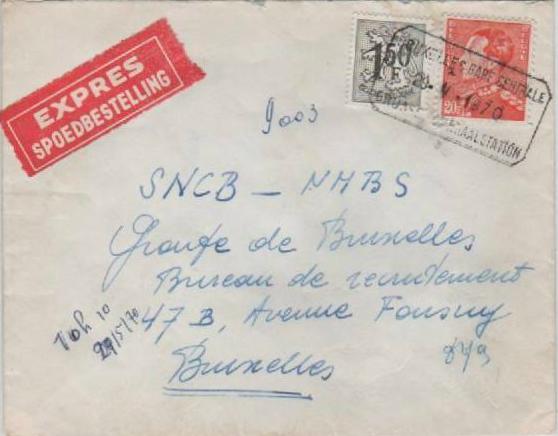 EXPRES
SPOEDBESTELLING
1F50
20F
BRUXELLES GARE CENTRALE
V 1970
CENTRAALSTATION
9003
SNCB - NMBS
Groupe de Bruxelles
Bureau de recrutement
47 B, Avenue Fonsny
Bruxelles
10h 10
29/5/70